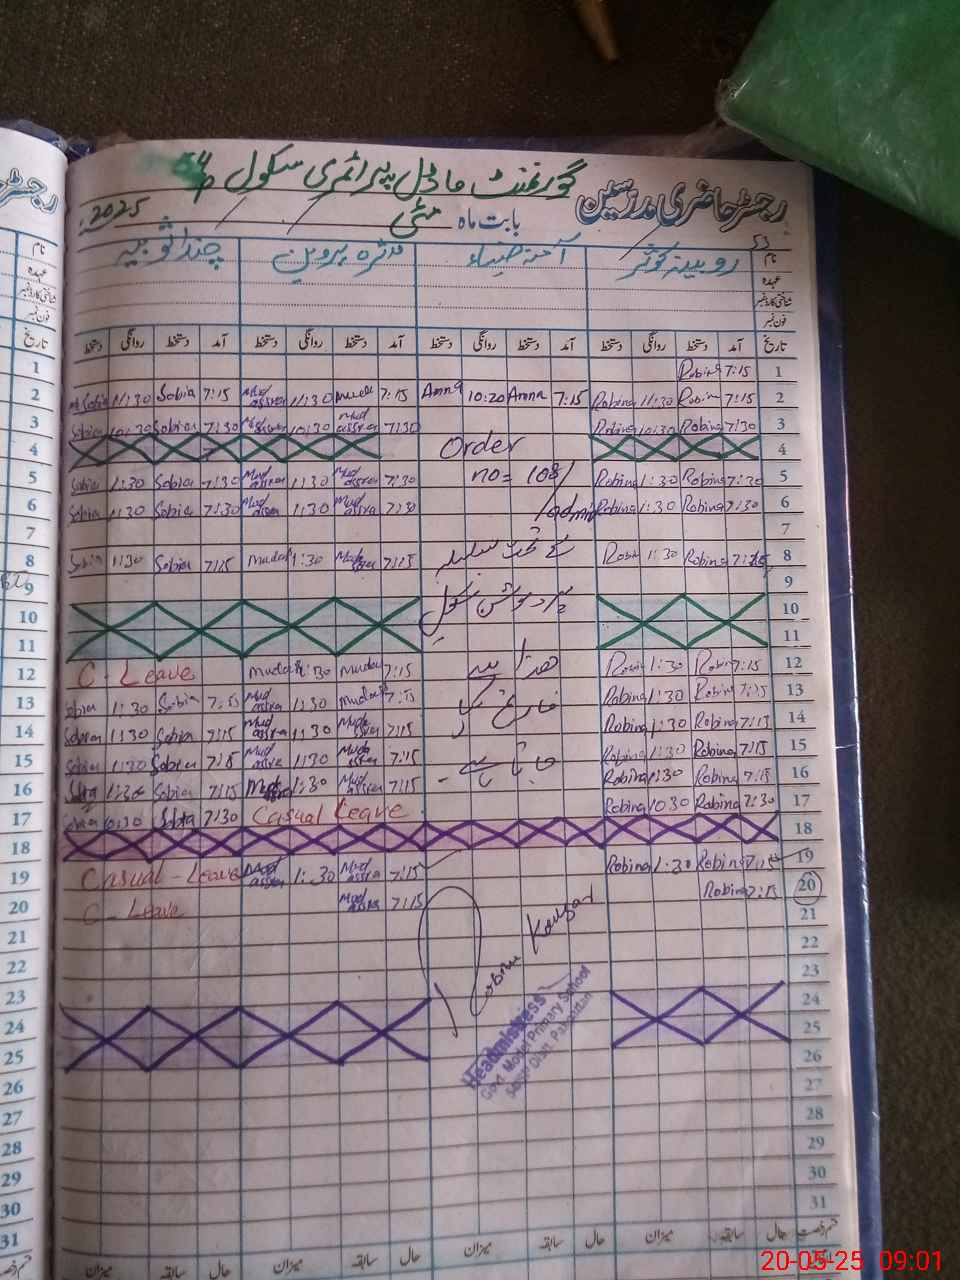 گورنمنٹ ماڈل پرائمری سکول
رجسٹر حاضری مدرسین بابت ماہ مئی 2025
نام روبینہ کوثر آمنہ ضیاء مدثرہ پروین چندا ثوبیہ
عہدہ
شناختی کارڈ نمبر
فون نمبر
تاریخ آمد دستخط روانگی دستخط آمد دستخط روانگی دستخط آمد دستخط روانگی دستخط آمد دستخط روانگی دستخط
1 7:15 Robina
2 Sobia 11:30 Sobia 7:15 Mudassra 11:30 7:15 Amna 10:20 Amna 7:15 Robina 11:30 Robina 7:15 2
3 Sobia 10:30 Sobia 7:30 10:30 Mudassra 7:30 Robina 10:30 Robina 7:30 3
4 Order 4
5 Sobia 1:30 Sobia 7:30 Mudassra 1:30 Mudassra 7:30 no= 108/ Robina 1:30 Robina 7:30 5
6 Sobia 1:30 Sobia 7:30 Mudassra 1:30 Mudassra 7:30 /admin Robina 1:30 Robina 7:30 6
7 7
8 Sobia 1:30 Sobia 7:15 1:30 7:15 کے تحت سلسلہ 1:30 Robina 8
9 9
10 سکول 10
11 11
12 C-Leave 1:30 7:15 ھذا سے 1:30 7:15 12
13 Sobia 1:30 Sobia 7:15 Mudassra 1:30 7:15 فارغ کیا Robina 1:30 Robina 7:15 13
14 Sobia 1:30 Sobia 7:15 Mudassra 1:30 Mudassra 7:15 Robina 1:30 Robina 7:15 14
15 Sobia 1:30 Sobia 7:15 Mudassra 1:30 Mudassra 7:15 جاتا ہے۔ Robina 1:30 Robina 7:15 15
16 1:30 Sobia 7:15 1:30 Mudassra 7:15 Robina 1:30 Robina 7:15 16
17 Sobia 10:30 Sobia 7:30 Casual Leave Robina 10:30 Robina 7:30 17
18 18
19 Casual-Leave Mudassra 1:30 Mudassra 7:15 Robina 1:30 Robina 7:15 19
20 C-Leave Mudassra 7:15 Robina 7:15 20
21 21
22 22
23 Robina Kausar 23
24 24
25 Headmistress 25
26 Govt. Model Primary School 26
27 Distt. Pakpattan 27
28 28
29 29
30 30
31 31
حال سابقہ میزان حال سابقہ میزان حال سابقہ میزان حال سابقہ میزان
20-05-25 09:01